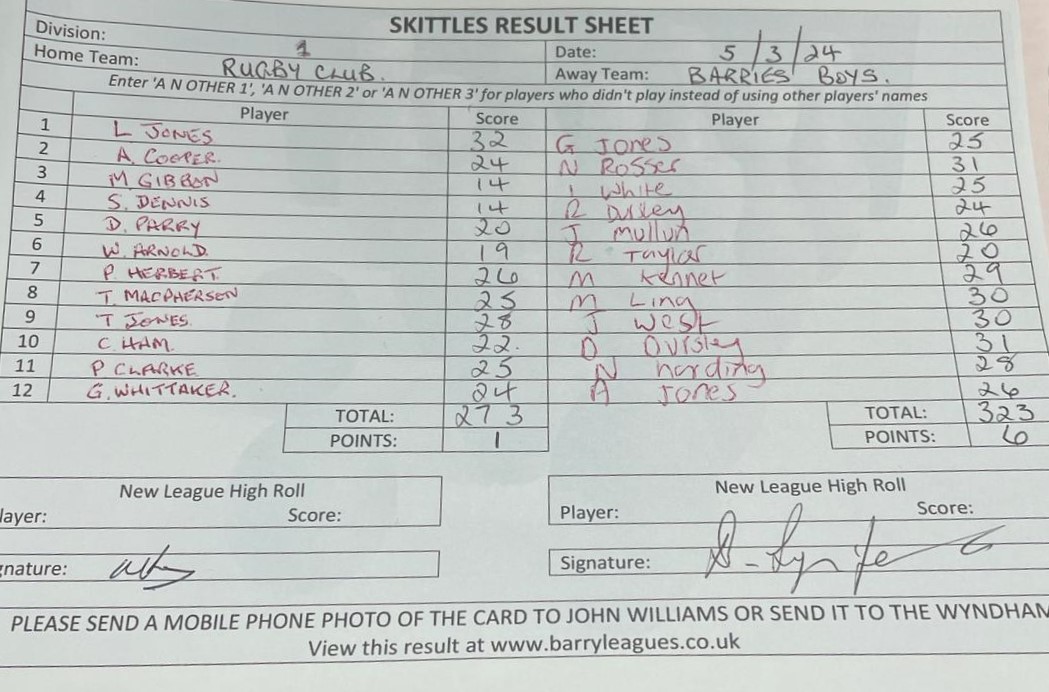 SKITTLES RESULT SHEET
Division: 1
Date: 5/3/24
Home Team: RUGBY CLUB.
Away Team: BARRIES BOYS.
Enter 'A N OTHER 1', 'A N OTHER 2' or 'A N OTHER 3' for players who didn't play instead of using other players' names
Player Score Player Score
1 L JONES 32 G Jones 25
2 A. COOPER. 24 N Rosser 31
3 M GIBBON 14 I White 25
4 S. DENNIS 14 R 24
5 D. PARRY 20 J 26
6 W. ARNOLD. 19 R Taylor 20
7 P. HERBERT. 26 M Kenner 29
8 T. MACPHERSEN 25 M Ling 30
9 T JONES. 28 J West 30
10 C HAM. 22. D 31
11 P CLARKE 25 N harding 28
12 G. WHITTAKER. 24 A Jones 26
TOTAL: 273 TOTAL: 323
POINTS: 1 POINTS: 6
New League High Roll New League High Roll
layer: Score: Player: Score:
gnature: Signature:
PLEASE SEND A MOBILE PHONE PHOTO OF THE CARD TO JOHN WILLIAMS OR SEND IT TO THE WYNDHAM
View this result at www.barryleagues.co.uk